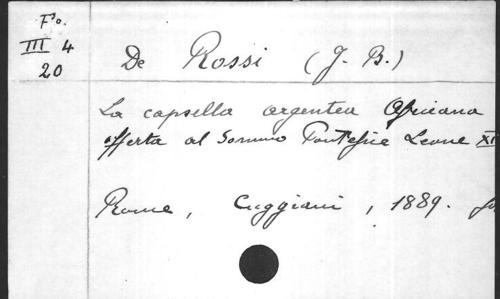 Fo.
III 4
20
De Rossi (J. B.)
La capsella argentea Africana
offerta al Sommo Pontefice Leone XI
Rome, Cuggiani, 1889.